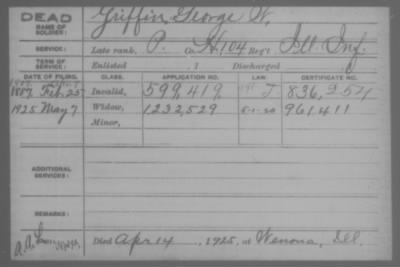 DEAD
Griffin, George W.
NAME OF SOLDIER:
SERVICE: Late rank, P. Co. H, 104 Reg't Ill. Inf.
TERM OF SERVICE: Enlisted , 1 Discharged
DATE OF FILING. CLASS. APPLICATION NO. LAW. CERTIFICATE NO.
1887 Feb. 25 Invalid, 599,419 J 836,254
1925 May 7 Widow, 1,232,529 5-1-20 961411
Minor,
ADDITIONAL SERVICES:
REMARKS:
Died Apr 14, 1925, at Wenona, Ill.